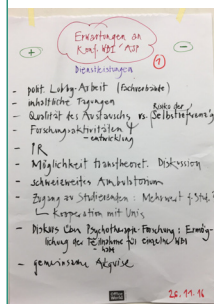 Erwartungen an
Konf. WDI / ASP
+
-
Dienstleistungen
1
- polit. Lobby-Arbeit (Fachverbände)
- inhaltliche Tagungen
- Qualität des Austausches vs. Risiko der (Selbstreferenz)
- Forschungsaktivitäten
- entwicklung
- PR
- Möglichkeit transtheoret. Diskussion
- schweizweites Ambulatorium
- Zugang zu Studierenden: Mehrwert f. Stud.?
Kooperation mit Unis
- Diskurs über Psychotherapie-Forschung: Ermög-
lichung der Teilnahme für einzelne WBI
- gemeinsame Akquise
26.11.16